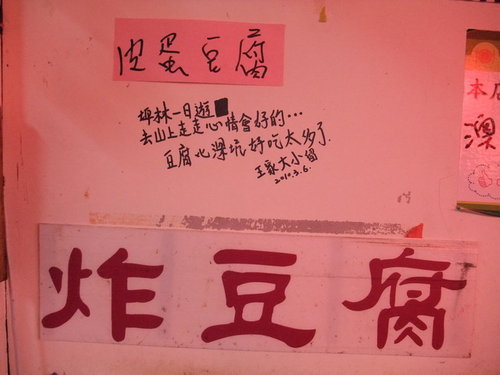 皮蛋豆腐
坪林一日遊
去山上走走心情會好的...
豆腐比深坑好吃太多了
王家大小留
2010.3.6.
本店
澳
炸豆腐